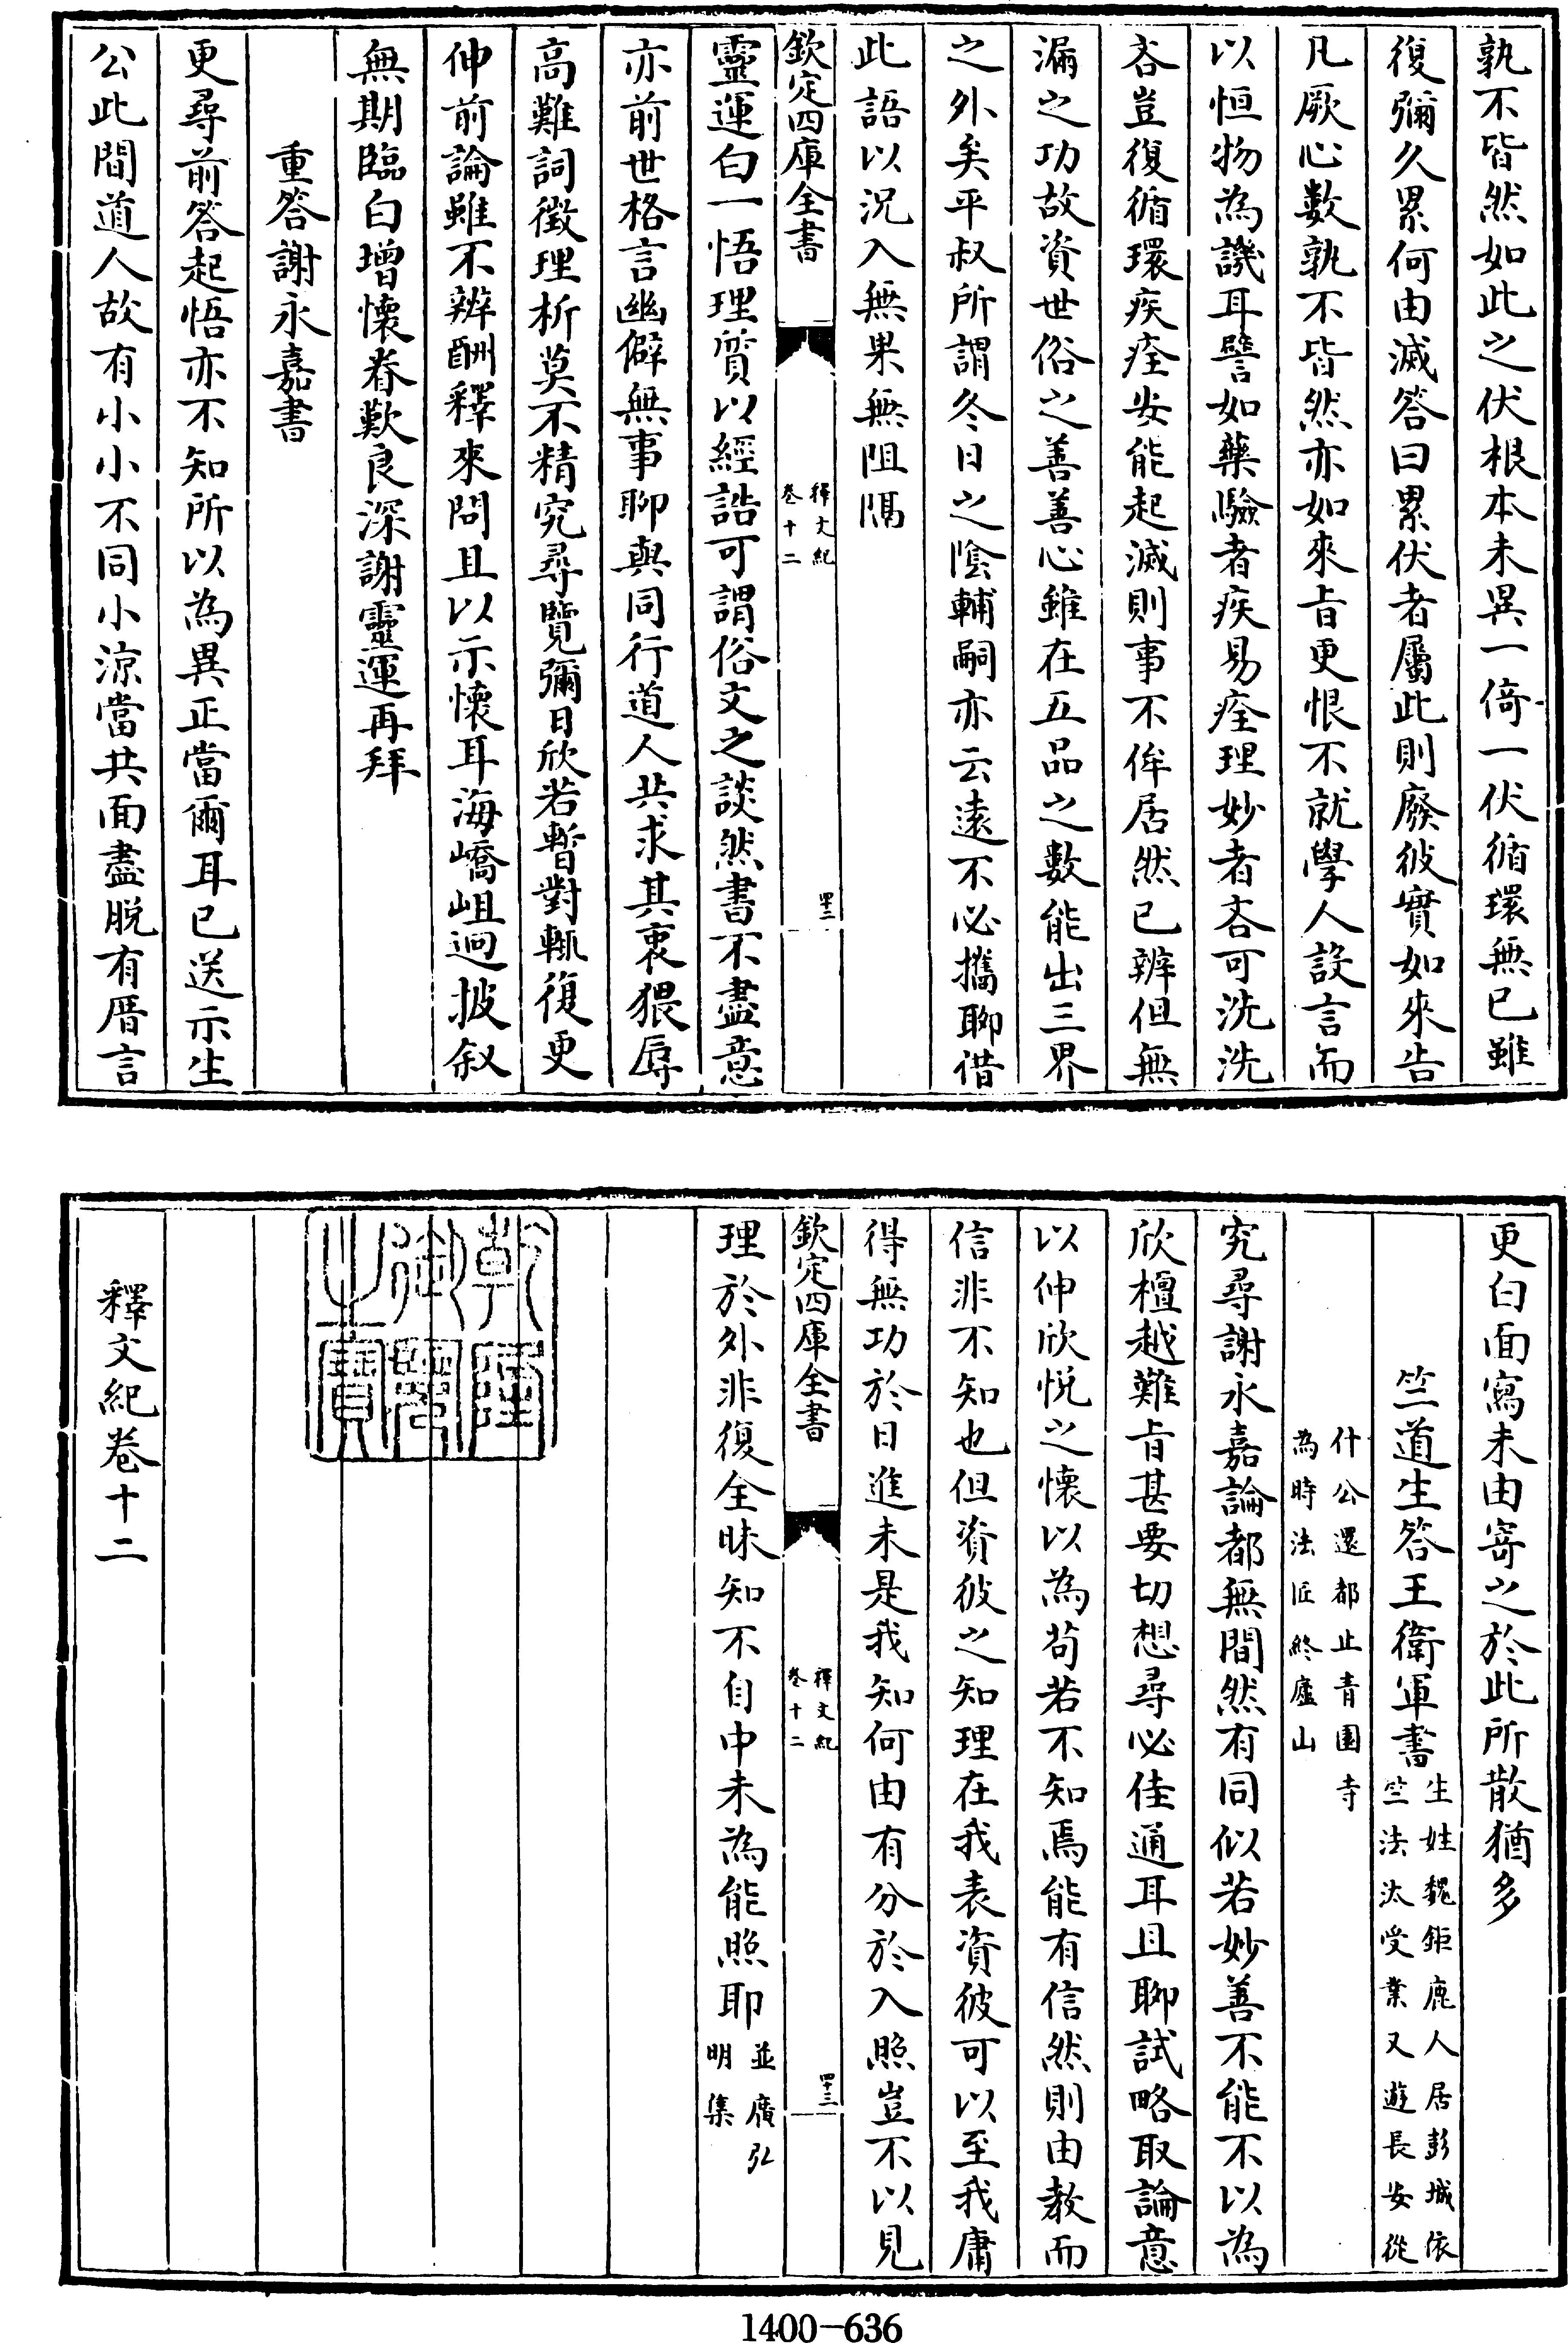 孰不皆然如此之伏根本未異一倚一伏循環無已雖
復彌久累何由滅答曰累伏者屬此則廢彼實如來告
凡厥心數孰不皆然亦如來旨更恨不就學人設言而
以恒物為譏耳譬如藥驗者疾易痊理妙者吝可洗洗
吝豈復循環疾痊安能起滅則事不侔居然已辨但無
漏之功故資世俗之善善心雖在五品之數能出三界
之外矣平叔所謂冬日之陰輔嗣亦云遠不必攜聊借
此語以況入無果無阻隔
欽定四庫全書
釋文紀
卷十二
四十二
靈運白一悟理質以經誥可謂俗文之談然書不盡意
亦前世格言幽僻無事聊與同行道人共求其衷猥辱
高難詞徵理析莫不精究尋覽彌日欣若暫對輒復更
伸前論雖不辨酬釋來問且以示懷耳海嶠岨迥披叙
無期臨白增懷眷歎良深謝靈運再拜
重答謝永嘉書
更尋前答起悟亦不知所以為異正當爾耳已送示生
公此間道人故有小小不同小涼當共面盡脫有厝言
更白面寫未由寄之於此所散猶多
竺道生答王衛軍書
生姓魏鉅鹿人居彭城依
竺法汰受業又遊長安從
什公還都止青園寺
為時法匠終廬山
究尋謝永嘉論都無間然有同似若妙善不能不以為
欣檀越難旨甚要切想尋必佳通耳且聊試略取論意
以伸欣悅之懷以為苟若不知焉能有信然則由教而
信非不知也但資彼之知理在我表資彼可以至我庸
得無功於日進未是我知何由有分於入照豈不以見
欽定四庫全書
釋文紀
卷十二
四十三
理於外非復全昧知不自中未為能照耶
並廣弘
明集
乾隆
御覽
之寶
釋文紀卷十二
1400-636